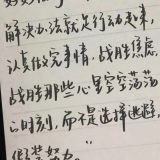 解决办法就是行动起来，
认真做完事情，战胜焦虑
战胜那些心里空空荡荡
的时刻，而不是选择逃避，
假装努力。